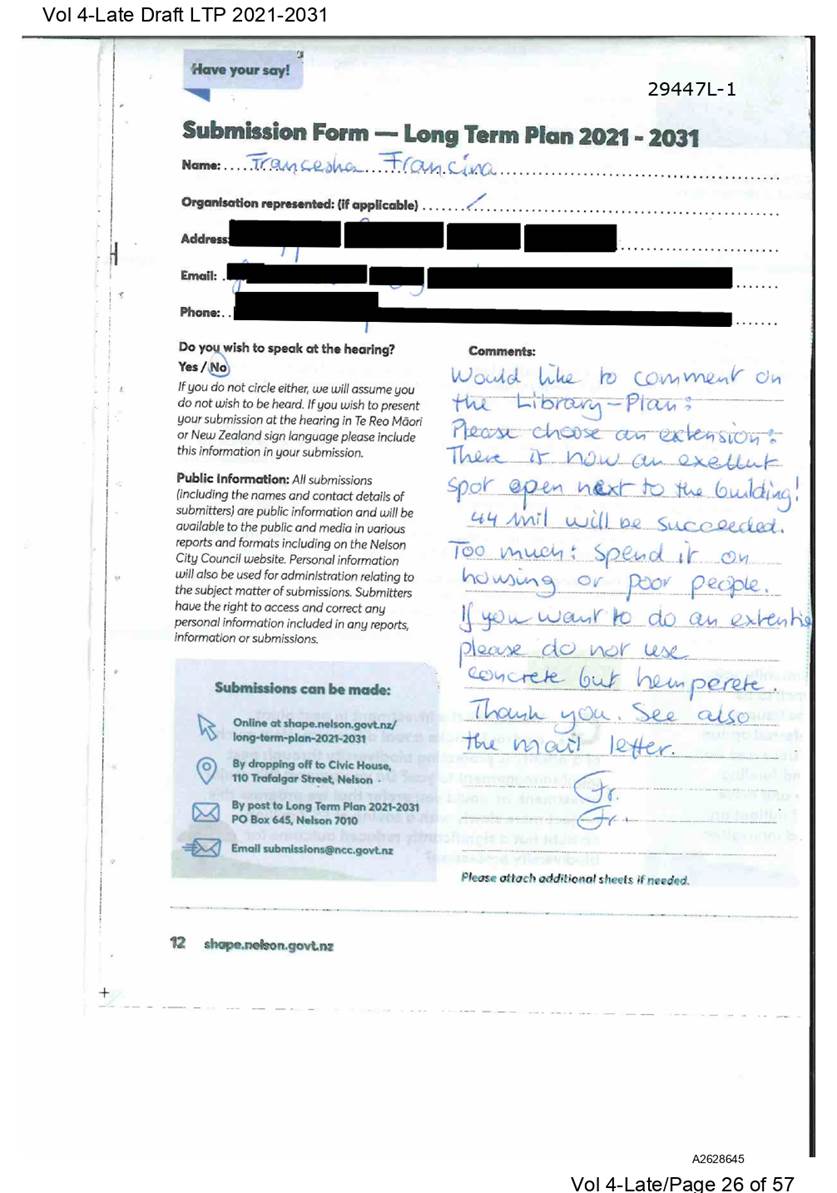 Vol 4-Late Draft LTP 2021-2031
Have your say!
29447L-1
Submission Form — Long Term Plan 2021 - 2031
Name: Francesha Francina
Organisation represented: (if applicable) /
Address:
Email:
Phone:
Do you wish to speak at the hearing?
Yes / No
If you do not circle either, we will assume you
do not wish to be heard. If you wish to present
your submission at the hearing in Te Reo Māori
or New Zealand sign language please include
this information in your submission.
Public Information: All submissions
(including the names and contact details of
submitters) are public information and will be
available to the public and media in various
reports and formats including on the Nelson
City Council website. Personal information
will also be used for administration relating to
the subject matter of submissions. Submitters
have the right to access and correct any
personal information included in any reports,
information or submissions.
Submissions can be made:
Online at shape.nelson.govt.nz/
long-term-plan-2021-2031
By dropping off to Civic House,
110 Trafalgar Street, Nelson
By post to Long Term Plan 2021-2031
PO Box 645, Nelson 7010
Email submissions@ncc.govt.nz
Comments:
Would like to comment on
the Library-Plan:
Please choose an extension:
There is now an exellut
spot open next to the building!
44 mil will be succeeded.
Too much: Spend it on
housing or poor people.
If you want to do an extentio
please do not use
concrete but hemperete.
Thank you. See also
the mail letter.
Fr.
Fr.
Please attach additional sheets if needed.
12 shape.nelson.govt.nz
A2628645
Vol 4-Late/Page 26 of 57